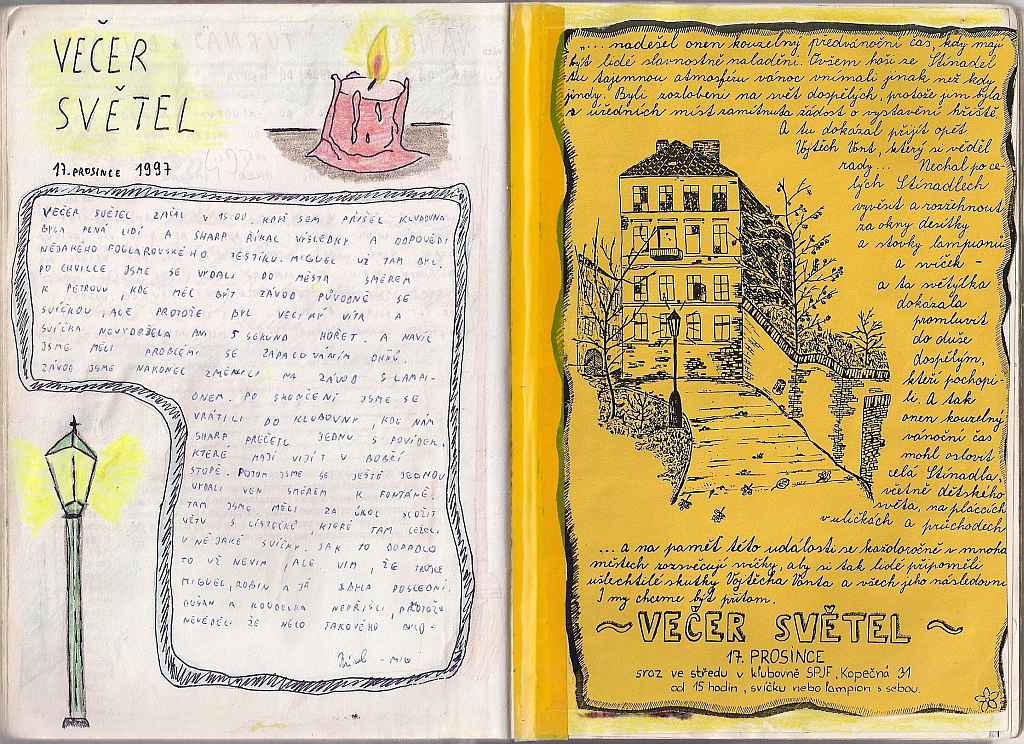 VEČER
SVĚTEL
17. PROSINCE 1997
VEČER SVĚTEL ZAČAL V 15.00. KDYŽ SEM PŘIŠEL KLUBOVNA
BYLA PLNÁ LIDÍ A SHARP ŘÍKAL VÝSLEDKY A ODPOVĚDI
NĚJAKÉHO FOGLAROVSKÉHO TESTÍKU. MIGUEL UŽ TAM BYL.
PO CHVILCE JSME SE VYDALI DO MĚSTA SMĚREM
K PETROVU, KDE MĚL BÝT ZÁVOD PŮVODNĚ SE
SVÍČKOU, ALE PROTOŽE BYL VELIKÝ VÍTR A
SVÍČKA NEVYDRŽELA ANI 5 SEKUND HOŘET. A NAVÍC
JSME MĚLI PROBLÉMY SE ZAPALOVÁNÍM OHŇŮ.
ZÁVOD JSME NAKONEC ZMĚNILI NA ZÁVOD S LAMPI-
ONEM. PO SKONČENÍ JSME SE
VRÁTILI DO KLUBOVNY, KDE NÁM
SHARP PŘEČETL JEDNU S POVÍDEK,
KTERÉ MAJÍ VYJÍT V BOBŘÍ
STOPĚ. POTOM JSME SE JEŠTĚ JEDNOU
VYDALI VEN SMĚREM K FONTÁNĚ.
TAM JSME MĚLI ZA ÚKOL SLOŽIT
VĚTU S LÍSTEČKŮ, KTERÉ TAM LEŽELI
U NĚJAKÉ SVÍČKY. JAK TO DOPADLO
TO UŽ NEVÍM, ALE VÍM, ŽE TROJKE
MIGUEL, ROBIN A JÁ BYLA POSLEDNÍ.
DUŠAN A KOUDELKA NEPŘIŠLI, PROTOŽE
NEVĚDĚLI ŽE NĚCO TAKOVÉHO BYLO-
„... nadešel onen kouzelný předvánoční čas, kdy mají
být lidé slavnostně naladěni. Ovšem hoši ze Stínadel
tu tajemnou atmosféru vánoc vnímali jinak než kdy
jindy. Byli rozzlobeni na svět dospělých, protože jim byla
z úředních míst zamítnuta žádost o vystavění hřiště.
A tu dokázal přijít opět
Vojtěch Vont, který si věděl
rady... Nechal po ce-
lých Stínadlech
vyvěsit a rozžehnout
za okny desítky
a stovky lampionů
a svíček -
a ta světýlka
dokázala
promluvit
do duše
dospělým,
kteří pochopi-
li. A tak
onen kouzelný
vánoční čas
mohl oslovit
celá Stínadla,
včetně dětského
světa, na pláccích
v uličkách a průchodech
... a na paměť této události se každoročně v mnoha
městech rozsvěcují svíčky, aby si tak lidé připoměli
ušlechtilé skutky Vojtěcha Vonta a všech jeho následovní
I my chceme být přitom.
~ VEČER SVĚTEL ~
17. PROSINCE
sraz ve středu v klubovně SPJF, Kopečná 31
od 15 hodin, svíčku nebo lampion s sebou.